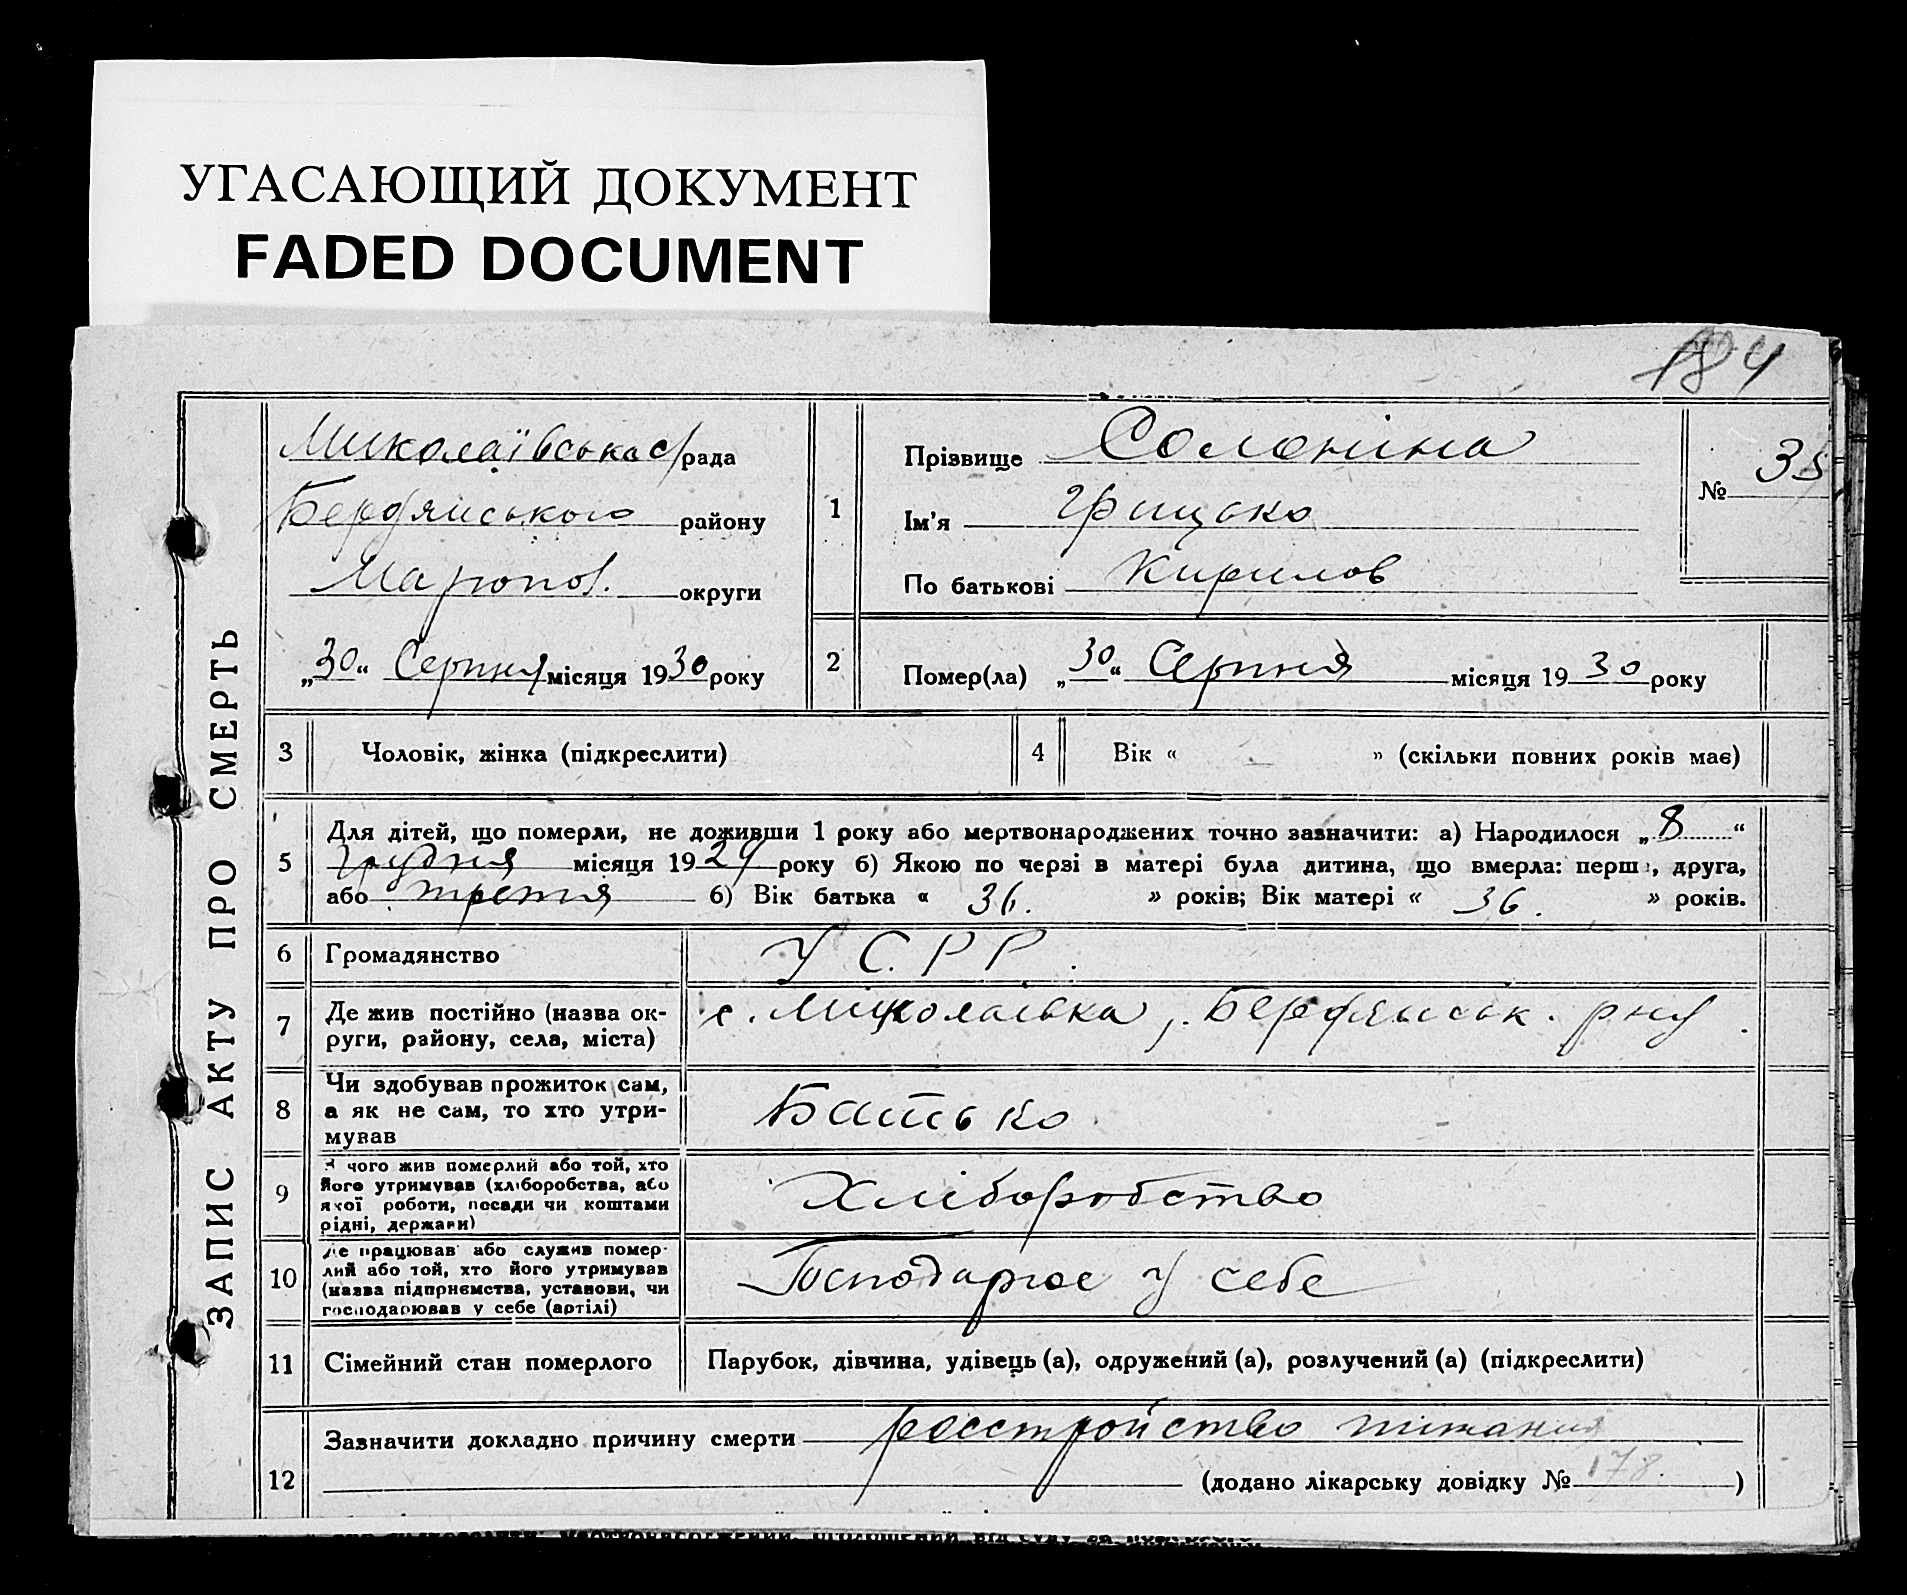 УГАСАЮЩИЙ ДОКУМЕНТ
FADED DOCUMENT
184
ЗАПИС АКТУ ПРО СМЕРТЬ
Миколаївська с/рада
Бердянського району
Маріюпол. округи
„30“ Серпня місяця 1930 року
1
Прізвище Солоніна
Ім'я Грицько
По батькові Кирилов
№ 35
2
Помер(ла) „30“ Серпня місяця 1930 року
3 Чоловік, жінка (підкреслити)
4 Вік « — » (скільки повних років має)
5 Для дітей, що померли, не доживши 1 року або мертвонароджених точно зазначити: а) Народилося „8“
грудня місяця 1929 року б) Якою по черзі в матері була дитина, що вмерла: перша, друга,
або третя б) Вік батька « 36. » років; Вік матері « 36. » років.
6 Громадянство УСРР.
7 Де жив постійно (назва ок-
руги, району, села, міста)
с. Миколаївка, Бердянськ. р-ну
8 Чи здобував прожиток сам,
а як не сам, то хто утри-
мував
Батько
9 З чого жив померлий або той, хто
його утримував (хліборобства, або
якої роботи, посади чи коштами
рідні, держави)
Хліборобство
10 Де працював або служив помер-
лий або той, хто його утримував
(назва підприємства, установи, чи
господарював у себе (артілі)
Господарює у себе
11 Сімейний стан померлого
Парубок, дівчина, удівець (а), одружений (а), розлучений (а) (підкреслити)
12 Зазначити докладно причину смерти расстройство питания
(додано лікарську довідку № 178.)